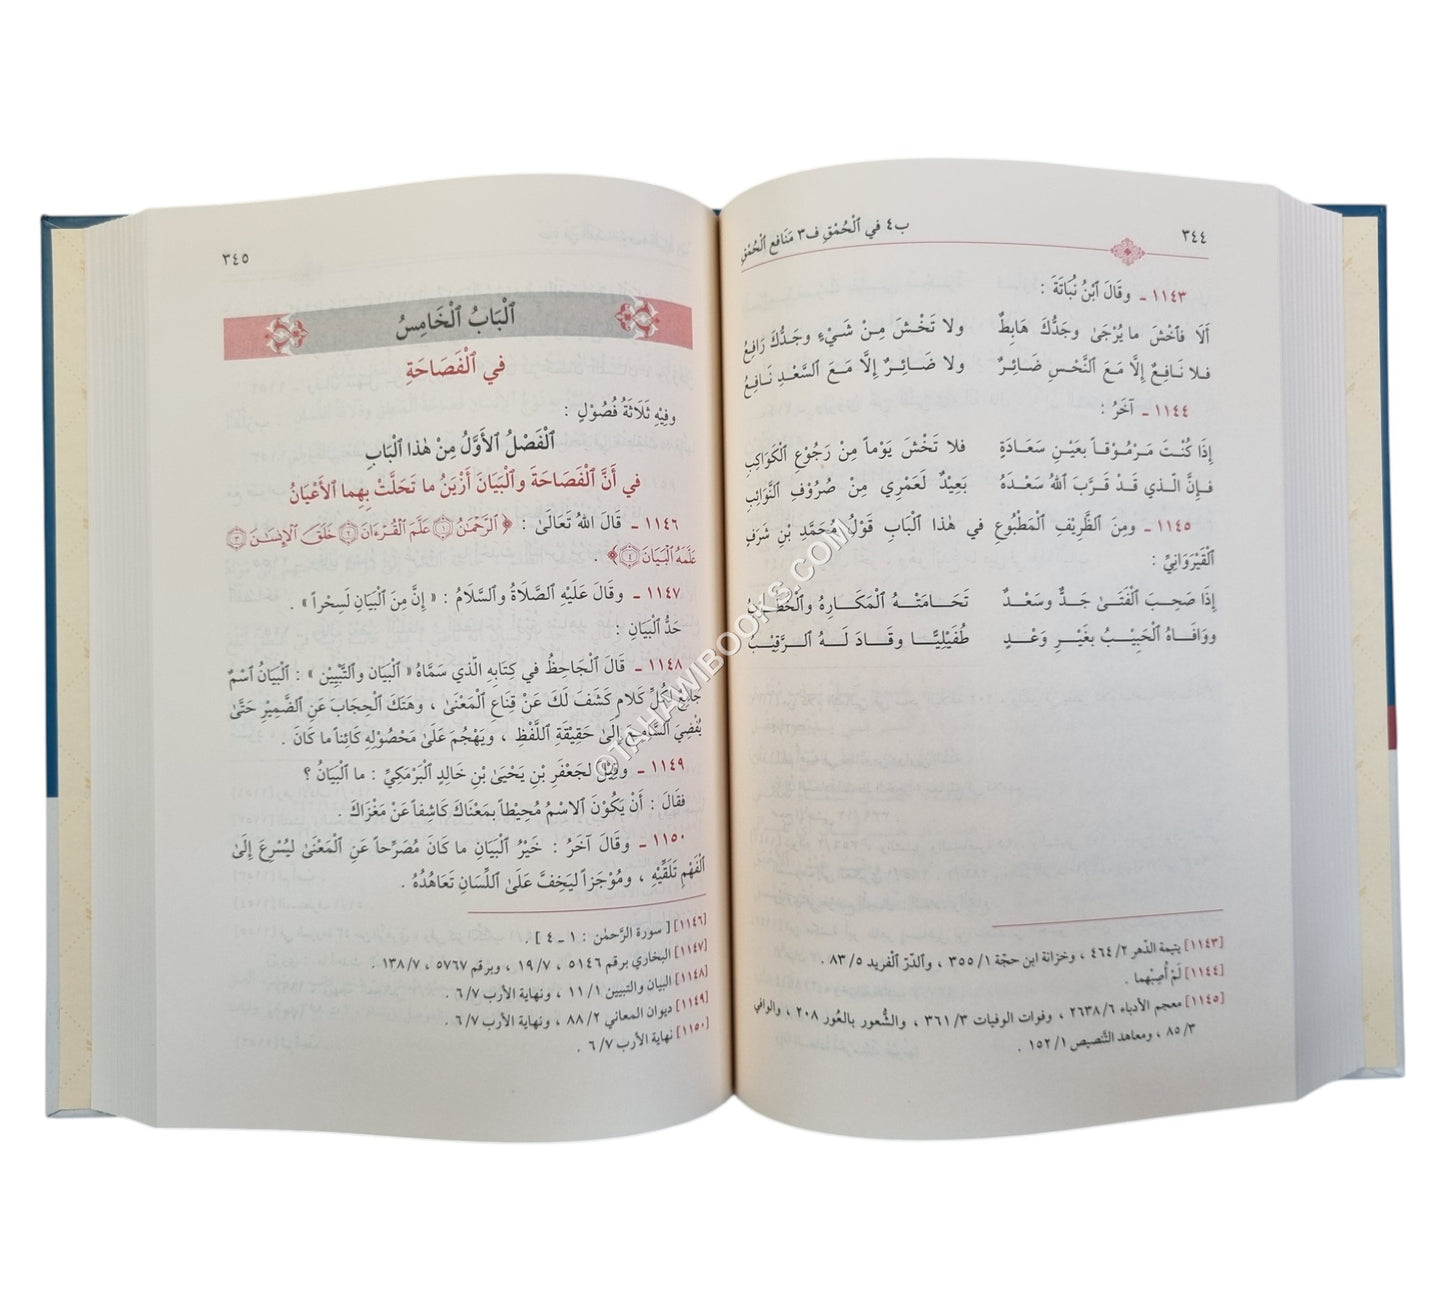 ٣٤٤
ب٤ في ٱلْحُمْقِ ف٣ مَنَافِعِ ٱلْحُمْقِ
١١٤٣ ـ وقَالَ ٱبْنُ نُبَاتَةَ :
أَلَا فٱخْشَ ما يُرْجَىٰ وجَدُّكَ هَابِطٌ ولا تَخْشَ مِنْ شَيْءٍ وجَدُّكَ رَافِعُ
فلا نَافِعٌ إِلَّا مَعَ ٱلنَّحْسِ ضَائِرٌ ولا ضَائِرٌ إِلَّا مَعَ ٱلسَّعْدِ نَافِعُ
١١٤٤ ـ آخَرُ :
إِذَا كُنْتَ مَرْمُوْقاً بعَيْنِ سَعَادَةٍ فلا تَخْشَ يَوْماً مِنْ رَجُوْعِ ٱلْكَوَاكِبِ
فإِنَّ ٱلَّذي قَدْ قَرَّبَ ٱللهُ سَعْدَهُ بَعِيْدٌ لَعَمْرِي مِنْ صُرُوْفِ ٱلنَّوَائِبِ
١١٤٥ ـ ومِنَ ٱلظَّرِيْفِ ٱلْمَطْبُوعِ في هٰذا ٱلْبَابِ قَوْلُ مُحَمَّدِ بْنِ شَرَفٍ
ٱلْقَيْرَوَانِيِّ :
إِذَا صَحِبَ ٱلْفَتَىٰ جَدٌّ وسَعْدٌ تَحَامَتْهُ ٱلْمَكَارِهُ والْخُطُوبُ
ووَافَاهُ ٱلْحَبِيْبُ بغَيْرِ وَعْدٍ طُفَيْلِيًّا وقَادَ لَهُ ٱلرَّقِيْبُ
[١١٤٣] يتيمة الدّهر ٢/ ٤٦٤ ، وخزانة ابن حجّة ١/ ٣٥٥ ، والدّرّ الْفريد ٥/ ٨٣ .
[١١٤٤] لَمْ أُصِبْهما .
[١١٤٥] معجم الأدباء ٦/ ٢٦٣٨ ، وفوات الوفيات ٣/ ٣٦١ ، والشُّعور بالعُور ٢٠٨ ، والوافي
٣/ ٨٥ ، ومعاهد التّنصيص ١/ ١٥٢ .
٣٤٥
ٱلْبَابُ ٱلْخَامِسُ
في ٱلْفَصَاحَةِ
وفِيْهِ ثَلَاثَةُ فُصُوْلٍ :
ٱلْفَصْلُ ٱلأَوَّلُ مِنْ هٰذا ٱلْبَابِ
في أَنَّ ٱلْفَصَاحَةَ وٱلْبَيَانَ أَزْيَنُ ما تَحَلَّتْ بِهِما ٱلأَعْيَانُ
١١٤٦ ـ قَالَ ٱللهُ تَعَالَىٰ : ﴿ ٱلرَّحْمَٰنُ ۝١ عَلَّمَ ٱلْقُرْءَانَ ۝٢ خَلَقَ ٱلْإِنسَٰنَ ۝٣
عَلَّمَهُ ٱلْبَيَانَ ۝٤﴾ .
١١٤٧ ـ وقَالَ عَلَيْهِ ٱلصَّلَاةُ وٱلسَّلَامُ : « إِنَّ مِنَ ٱلْبَيَانِ لَسِحْراً » .
حَدُّ ٱلْبَيَانِ :
١١٤٨ ـ قَالَ ٱلْجَاحِظُ في كِتَابِهِ ٱلَّذي سَمَّاهُ « ٱلْبَيَان والتَّبْيِيْن » : ٱلْبَيَانُ ٱسْمٌ
جَامِعٌ لكُلِّ كَلَامٍ كَشَفَ لَكَ عَنْ قِنَاعِ ٱلْمَعْنَىٰ ، وهَتَكَ ٱلْحِجَابَ عَنِ ٱلضَّمِيْرِ حَتَّىٰ
يُفْضِيَ ٱلسَّامِعَ إِلَىٰ حَقِيْقَةِ ٱللَّفْظِ ، ويَهْجُمَ عَلَىٰ مَحْصُوْلِهِ كَائِناً ما كَانَ .
١١٤٩ ـ وقِيْلَ لجَعْفَرِ بْنِ يَحْيَىٰ بْنِ خَالِدٍ ٱلْبَرْمَكِيِّ : ما ٱلْبَيَانُ ؟
فقَالَ : أَنْ يَكُوْنَ ٱلاسْمُ مُحِيْطاً بمَعْنَاكَ كَاشِفاً عَنْ مَغْزَاكَ .
١١٥٠ ـ وقَالَ آخَرُ : خَيْرُ ٱلْبَيَانِ ما كَانَ مُصَرِّحاً عَنِ ٱلْمَعْنَىٰ ليُسْرِعَ إِلَىٰ
ٱلْفَهْمِ تَلَقِّيْهِ ، ومُوْجَزاً ليَخِفَّ عَلَىٰ ٱللِّسَانِ تَعَاهُدُهُ .
[١١٤٦] [ سورة الرَّحمٰن : ١ ـ ٤ ] .
[١١٤٧] البخاري برقم ٥١٤٦ ، ٧/ ١٩ ، وبرقم ٥٧٦٧ ، ٧/ ١٣٨ .
[١١٤٨] البيان والتبيين ١/ ١١ ، ونهاية الأرب ٧/ ٦ .
[١١٤٩] ديوان المعاني ٢/ ٨٨ ، ونهاية الأرب ٧/ ٦ .
[١١٥٠] نهاية الأرب ٧/ ٦ .
©TAHAWIBOOKS.COM